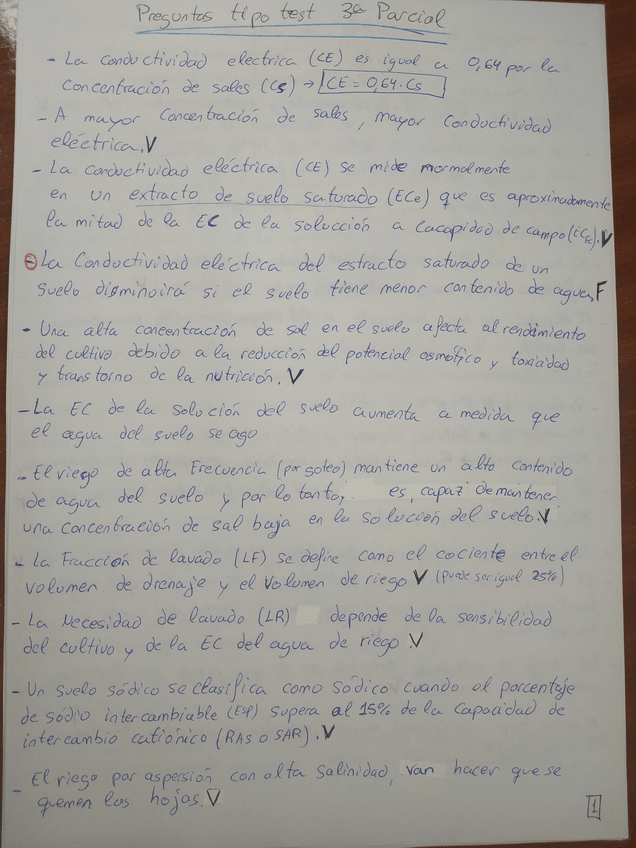 Preguntas tipo test 3ª Parcial
- La conductividad electrica (CE) es igual a 0,64 por la
concentración de sales (Cs) → CE = 0,64 · Cs
- A mayor concentración de sales, mayor conductividad
eléctrica. V
- La conductividad eléctrica (CE) se mide normalmente
en un extracto de suelo saturado (ECe) que es aproximadamente
la mitad de la EC de la solucción a cacapidad de campo (ECfc). V
- La Conductividad eléctrica del estracto saturado de un
suelo disminuirá si el suelo tiene menor contenido de agua, F
- Una alta concentración de sal en el suelo afecta al rendimiento
del cultivo debido a la reducción del potencial osmótico y toxicidad
y transtorno de la nutrición. V
- La EC de la solución del suelo aumenta a medida que
el agua del suelo se ago
- El riego de alta Frecuencia (por goteo) mantiene un alto contenido
de agua del suelo y por lo tanto, es, capaz de mantener
una concentración de sal baja en la solución del suelo. V
- La Fracción de lavado (LF) se define como el cociente entre el
volumen de drenaje y el volumen de riego V (puede ser igual 25%)
- La Necesidad de lavado (LR) depende de la sensibilidad
del cultivo y de la EC del agua de riego. V
- Un suelo sódico se clasifica como sódico cuando el porcentaje
de sódio intercambiable (ESP) supera al 15% de la capacidad de
intercambio catiónico (RAS o SAR). V
- El riego por aspersión con alta salinidad, van hacer que se
quemen las hojas. V
1